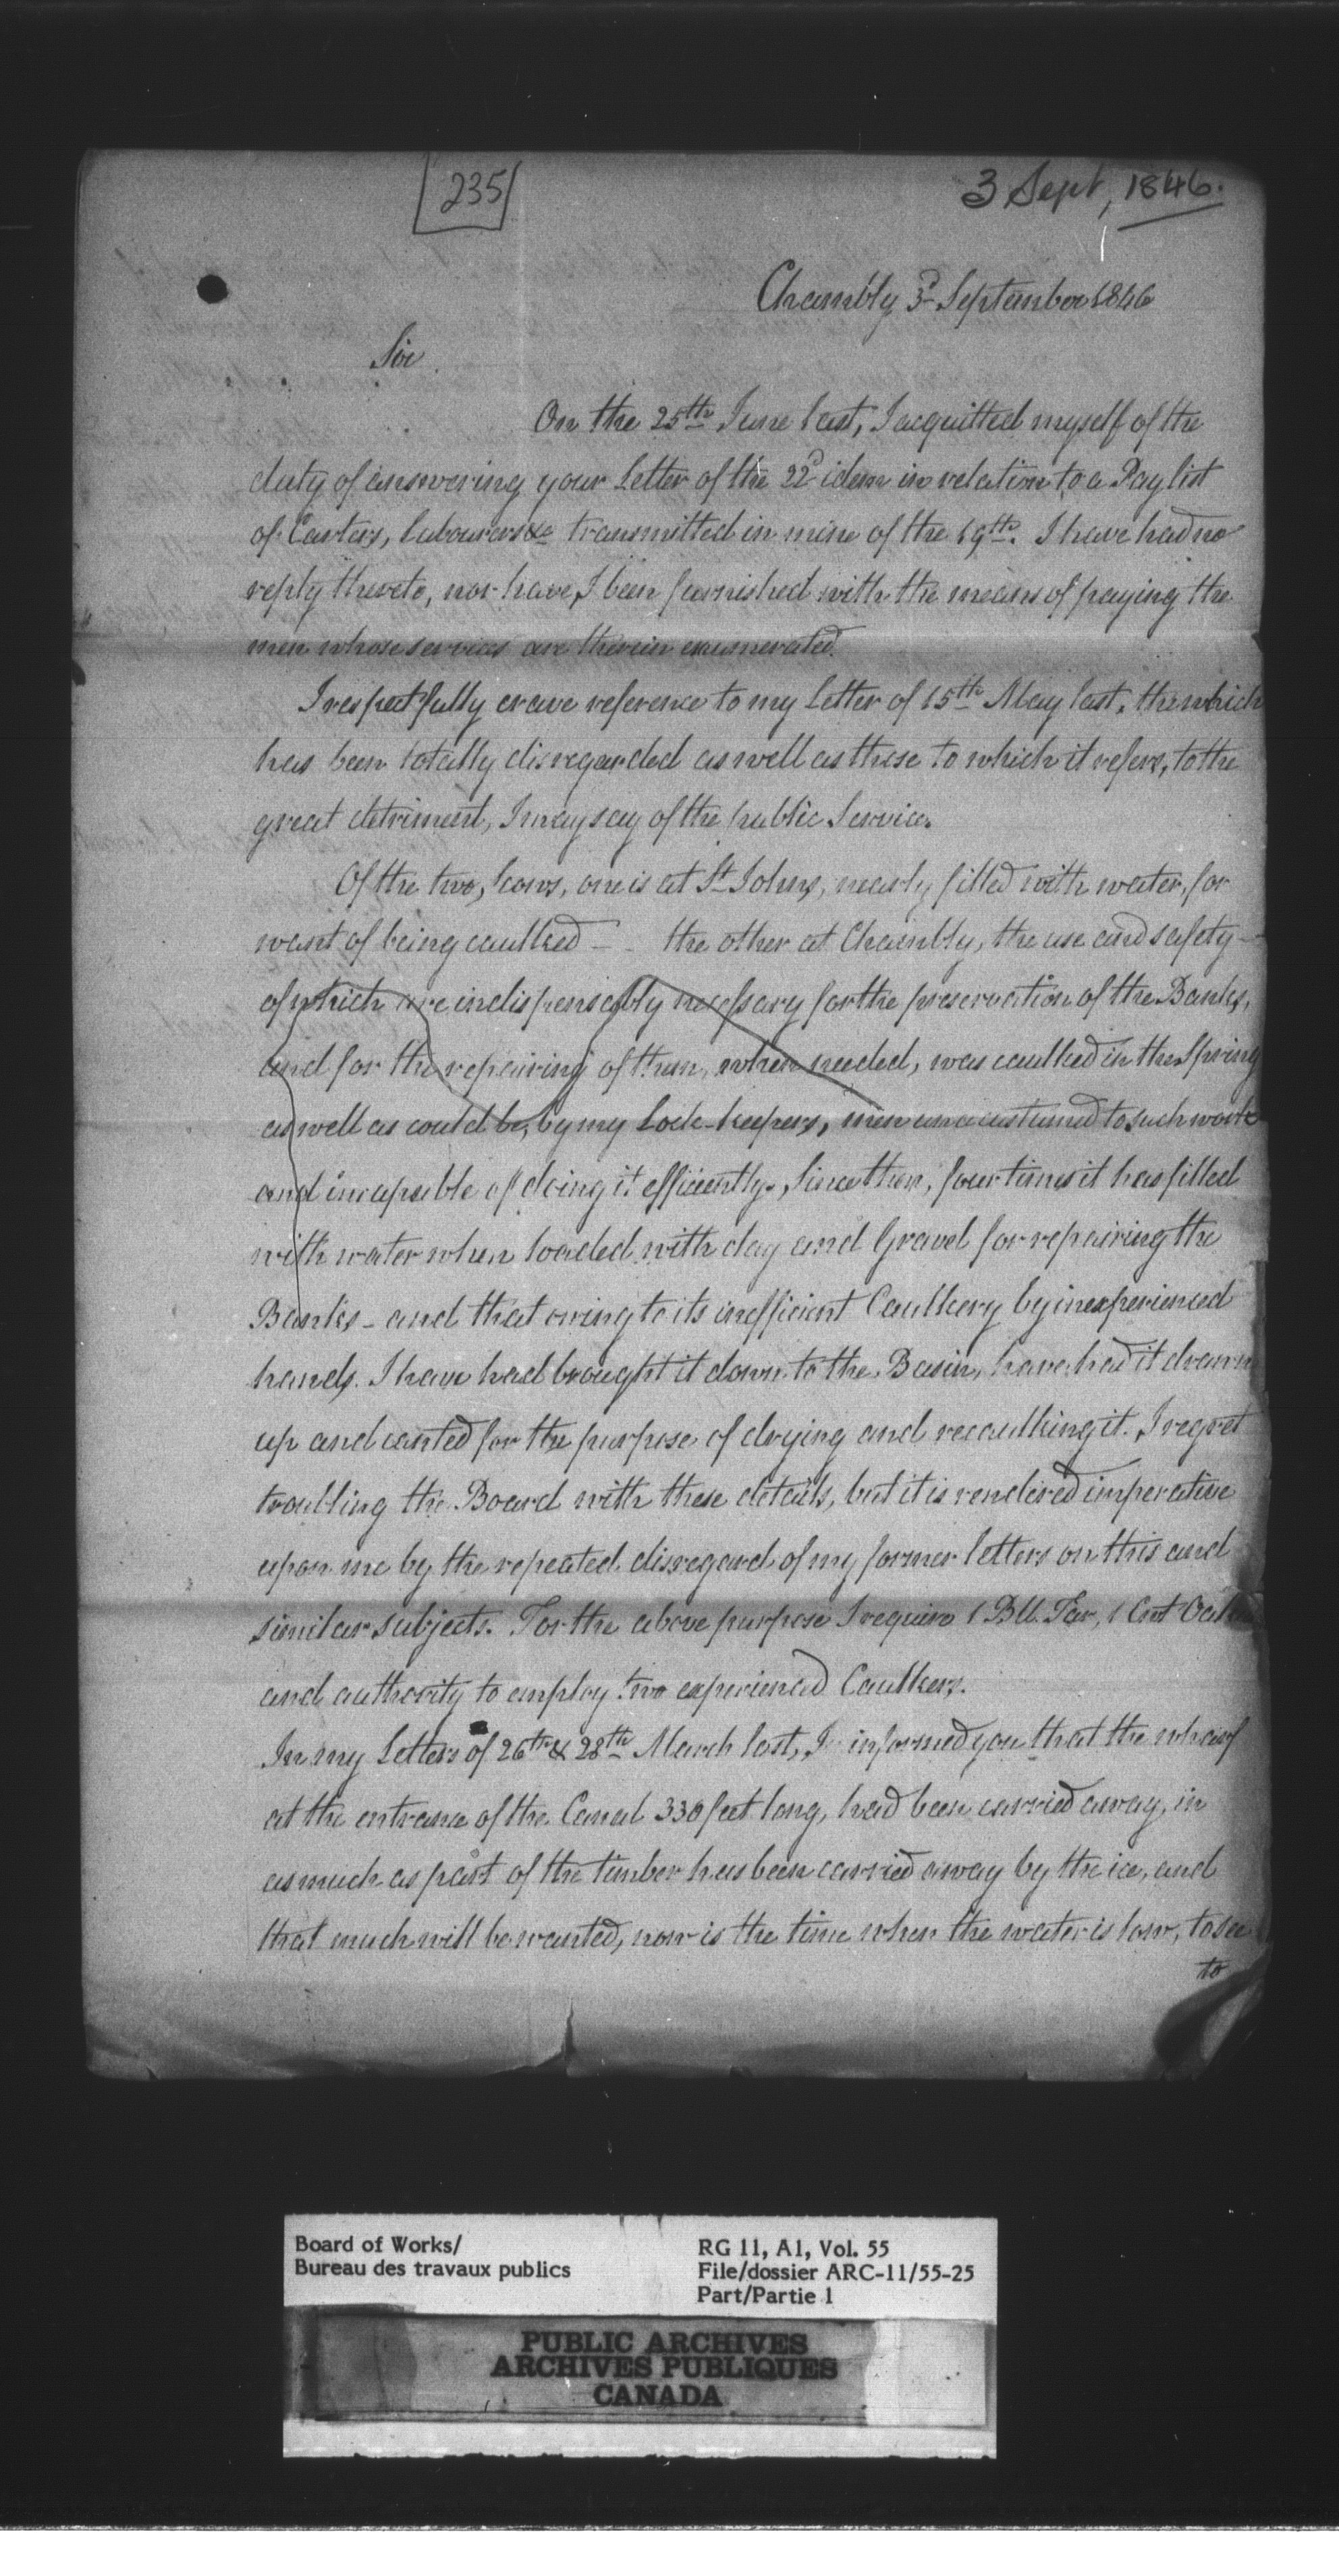 235
3 Sept, 1846.
Chambly 3d September 1846
Sir
On the 25th June last, I acquitted myself of the
duty of answering your Letter of the 22d idem in relation to a Pay list
of Carters, Labourers &c transmitted in mine of the 19th. I have had no
reply thereto, nor have I been furnished with the means of paying the
men whose services are therein enumerated.
I respectfully crave reference to my Letter of 15th May last, the which
has been totally disregarded as well as those to which it refers, to the
great detriment, I may say of the public Service.
Of the two, Scows, one is at St Johns, nearly filled with water, for
want of being caulked - - the other at Chambly, the use and safety -
of which are indispensably necessary for the preservation of the Banks,
and for the repairing of them, when needed, was caulked in the Spring
as well as could be, by my Lock-keepers, men unaccustumed to such work
and incapable of doing it efficiently. Since then, four times it has filled
with water when loaded with clay and Gravel for repairing the
Banks - and that owing to its inefficient Caulkery by inexperienced
hands. I have had brought it down to the Basin, have had it drawn
up and canted for the purpose of drying and recaulking it. I regret
troubling the Board with these details, but it is rendered imperative
upon me by the repeated disregard of my former letters on this and
similar subjects. For the above purpose I require 1 Bll. Tar, 1 Cwt Oakum
and authority to employ two experienced Caulkers.
In my Letters of 26th & 28th March last, I informed you that the wharf
at the entrance of the Canal 330 feet long, had been carried away, in
as much as part of the timber has been carried away by the ice, and
that much will be wanted, now is the time when the water is low, to see
to
Board of Works/
Bureau des travaux publics
RG 11, A1, Vol. 55
File/dossier ARC-11/55-25
Part/Partie 1
PUBLIC ARCHIVES
ARCHIVES PUBLIQUES
CANADA